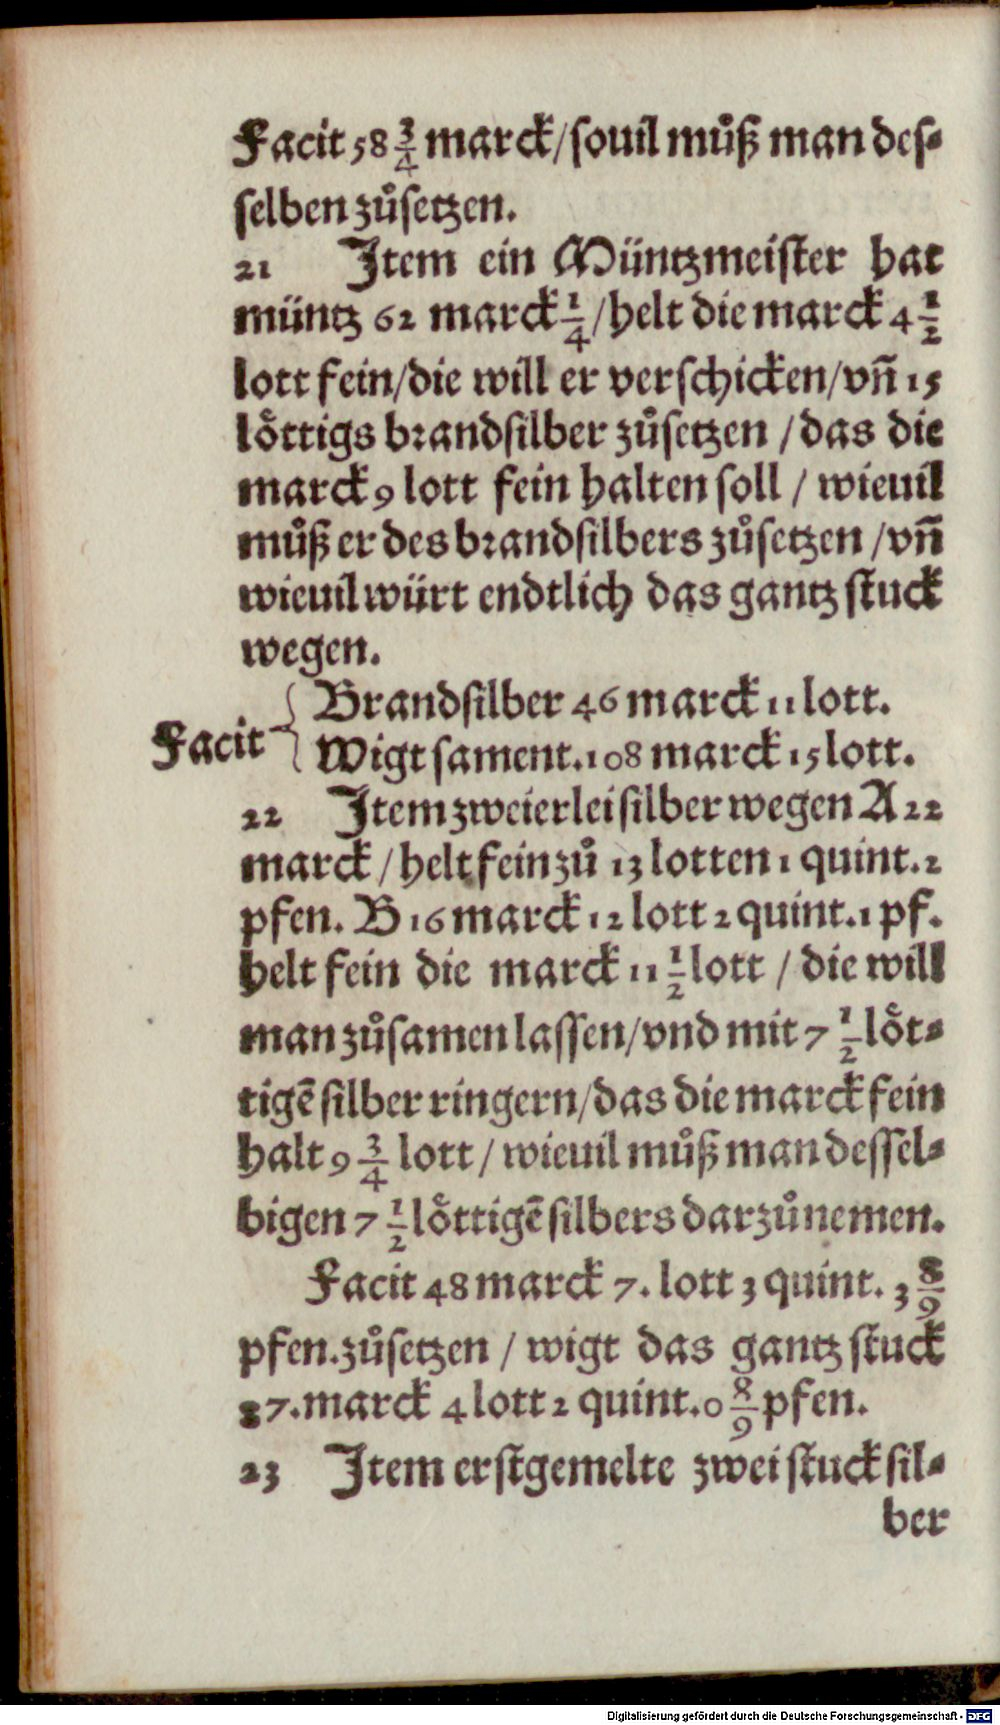 Facit 58 3/4 marck/souil muͦß man des-
selben zuͦsetzen.
21 Item ein Müntzmeister hat
müntz 62 marck 1/4/helt die marck 4 1/2
lott fein/die will er verschicken/vñ 15
loͤttigs brandsilber zuͦsetzen/das die
marck 9 lott fein halten soll/wieuil
muͦß er des brandsilbers zuͦsetzen/vñ
wieuil würt endtlich das gantz stuck
wegen.
Brandsilber 46 marck 11 lott.
Facit
Wigt sament. 108 marck 15 lott.
22 Item zweierlei silber wegen A 22
marck/helt fein zuͦ 13 lotten 1 quint. 2
pfen. B 16 marck 12 lott 2 quint. 1 pf.
helt fein die marck 11 1/2 lott/die will
man zuͦsamen lassen/vnd mit 7 1/2 loͤt-
tigẽ silber ringern/das die marck fein
halt 9 3/4 lott/wieuil muͦß man dessel-
bigen 7 1/2 loͤttigẽ silbers darzuͦ nemen.
Facit 48 marck 7. lott 3 quint. 3 8/9
pfen. zuͦsetzen/wigt das gantz stuck
87. marck 4 lott 2 quint. 0 8/9 pfen.
23 Item erstgemelte zwei stuck sil-
ber
Digitalisierung gefördert durch die Deutsche Forschungsgemeinschaft - DFG